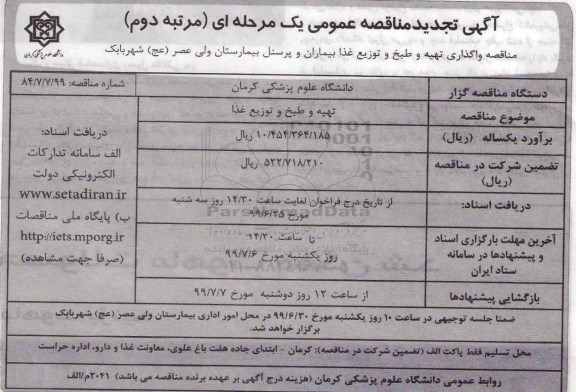 آگهی تجدید مناقصه عمومی یک مرحله ای (مرتبه دوم)
مناقصه واگذاری تهیه و طبخ و توزیع غذا بیماران و پرسنل بیمارستان ولی عصر (عج) شهربابک
دانشگاه علوم پزشکی کرمان
دستگاه مناقصه گزار
دانشگاه علوم پزشکی کرمان
شماره مناقصه: ۸۴/۷/۷/۹۹
موضوع مناقصه
تهیه و طبخ و توزیع غذا
برآورد یکساله (ریال)
۱۰/۴۵۴/۳۶۴/۱۸۵ ریال
تضمین شرکت در مناقصه
(ریال)
۵۲۲/۷۱۸/۲۱۰ ریال
دریافت اسناد:
از تاریخ درج فراخوان لغایت ساعت ۱۴/۳۰ روز سه شنبه
مورخ ۹۹/۶/۲۵
آخرین مهلت بارگزاری اسناد
و پیشنهادها در سامانه
ستاد ایران
تا ساعت ۱۴/۳۰
روز یکشنبه مورخ ۹۹/۷/۶
بازگشایی پیشنهادها
از ساعت ۱۲ روز دوشنبه مورخ ۹۹/۷/۷
دریافت اسناد:
الف سامانه تدارکات
الکترونیکی دولت
www.setadiran.ir
ب) پایگاه ملی مناقصات
http://iets.mporg.ir
(صرفا جهت مشاهده)
ضمنا جلسه توجیهی در ساعت ۱۰ روز یکشنبه مورخ ۹۹/۶/۳۰ در محل امور اداری بیمارستان ولی عصر (عج) شهربابک
برگزار خواهد شد.
محل تسلیم فقط پاکت الف (تضمین شرکت در مناقصه): کرمان - ابتدای جاده هفت باغ علوی، معاونت غذا و دارو، اداره حراست
روابط عمومی دانشگاه علوم پزشکی کرمان (هزینه درج آگهی بر عهده برنده مناقصه می باشد) ۲۰۴۱م/الف